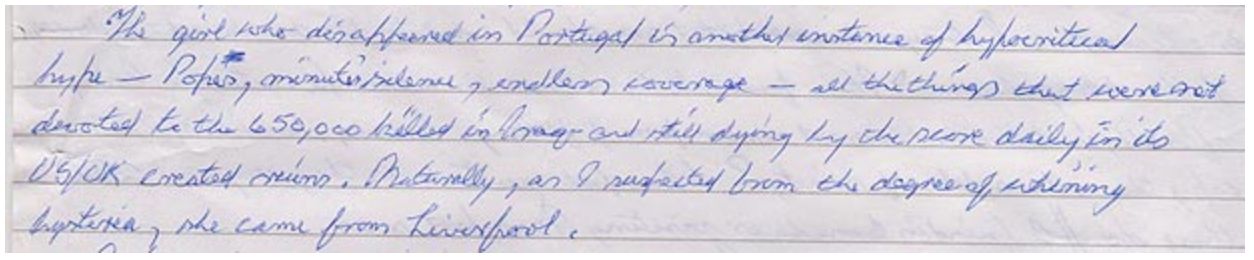 The girl who disappeared in Portugal is another instance of hypocritical
hype — Popes, minutes silence, endless coverage — all the things that were not
devoted to the 650,000 killed in Iraq and still dying by the score daily in its
US/UK created ruins. Naturally, as I suspected from the degree of whining
hysteria, she came from Liverpool.